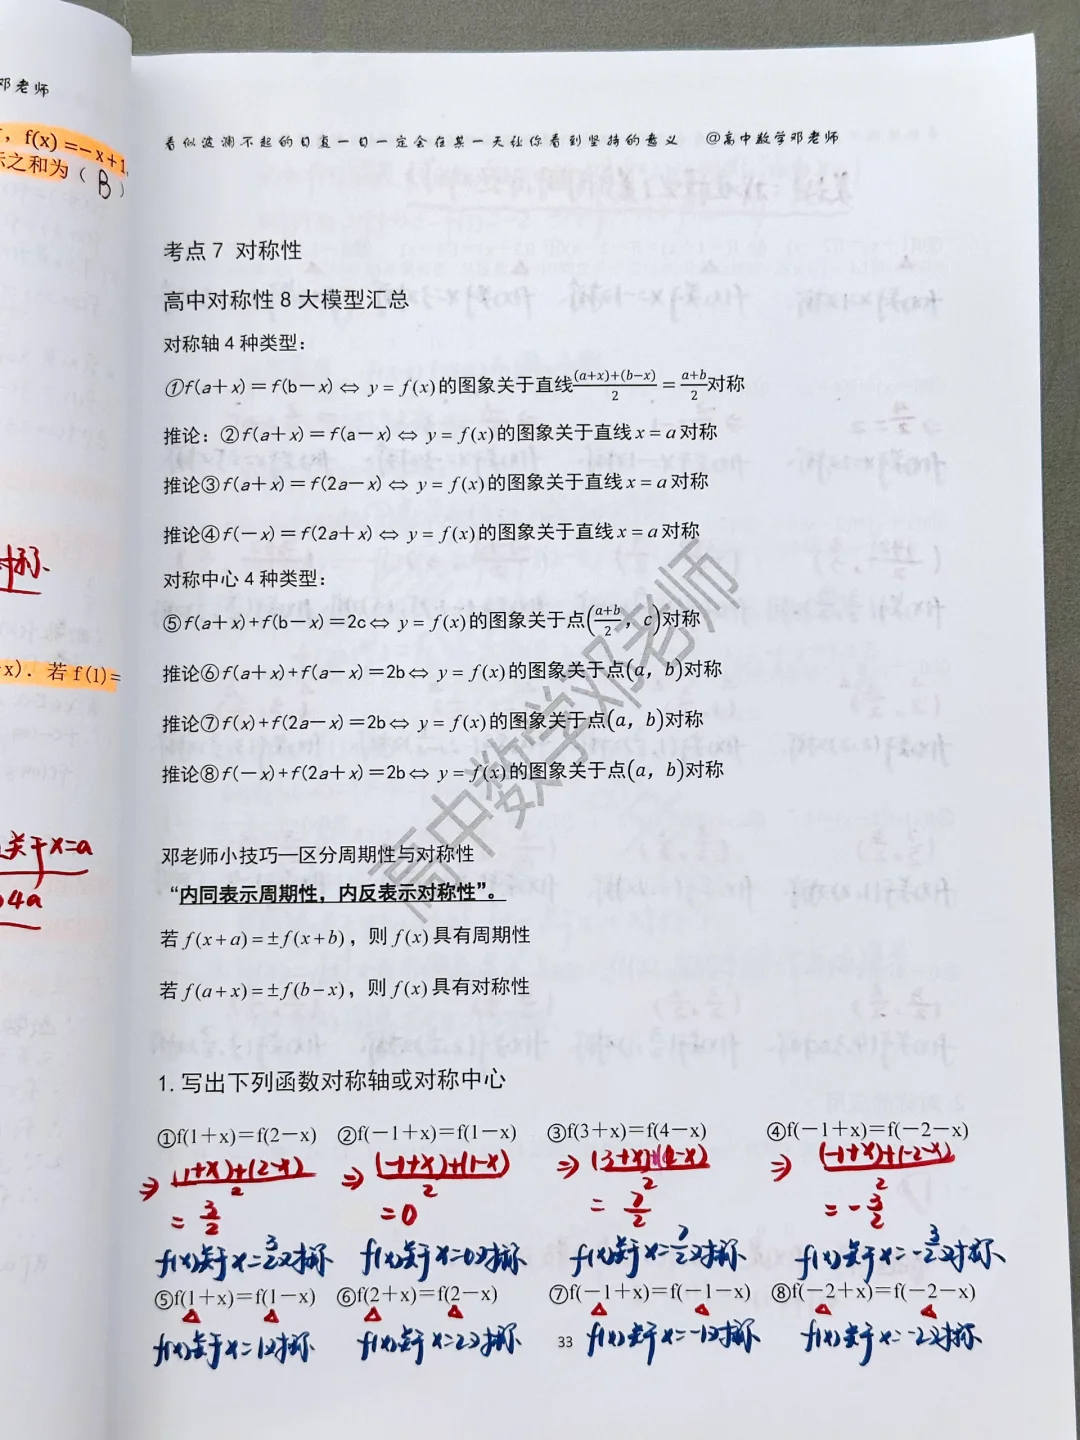 邓老师
f(x)=-x+1,
示之和为（ B ）
对称.
x). 若 f(1)=
关于x=a
4a
看似波澜不起的日复一日一定会在某一天让你看到坚持的意义 @高中数学邓老师
考点 7 对称性
高中对称性 8 大模型汇总
对称轴 4 种类型：
①f(a+x)=f(b-x)⇔ y=f(x)的图象关于直线((a+x)+(b-x))/2=(a+b)/2对称
推论：②f(a+x)=f(a-x)⇔ y=f(x)的图象关于直线x=a对称
推论③f(a+x)=f(2a-x)⇔ y=f(x)的图象关于直线x=a对称
推论④f(-x)=f(2a+x)⇔ y=f(x)的图象关于直线x=a对称
对称中心 4 种类型：
⑤f(a+x)+f(b-x)=2c⇔ y=f(x)的图象关于点((a+b)/2，c)对称
推论⑥f(a+x)+f(a-x)=2b⇔ y=f(x)的图象关于点(a，b)对称
推论⑦f(x)+f(2a-x)=2b⇔ y=f(x)的图象关于点(a，b)对称
推论⑧f(-x)+f(2a+x)=2b⇔ y=f(x)的图象关于点(a，b)对称
高中数学邓老师
邓老师小技巧—区分周期性与对称性
“内同表示周期性，内反表示对称性”。
若 f(x+a)=±f(x+b)，则 f(x)具有周期性
若 f(a+x)=±f(b-x)，则 f(x)具有对称性
1.写出下列函数对称轴或对称中心
①f(1+x)=f(2-x) ②f(-1+x)=f(1-x) ③f(3+x)=f(4-x) ④f(-1+x)=f(-2-x)
⇒ ((1+x)+(2-x))/2 ⇒ ((-1+x)+(1-x))/2 ⇒ ((3+x)+(4-x))/2 ⇒ ((-1+x)+(-2-x))/2
=3/2 =0 =7/2 =-3/2
f(x)关于x=3/2对称 f(x)关于x=0对称 f(x)关于x=7/2对称 f(x)关于x=-3/2对称
⑤f(1+x)=f(1-x) ⑥f(2+x)=f(2-x) ⑦f(-1+x)=f(-1-x) ⑧f(-2+x)=f(-2-x)
f(x)关于x=1对称 f(x)关于x=2对称 33 f(x)关于x=-1对称 f(x)关于x=-2对称